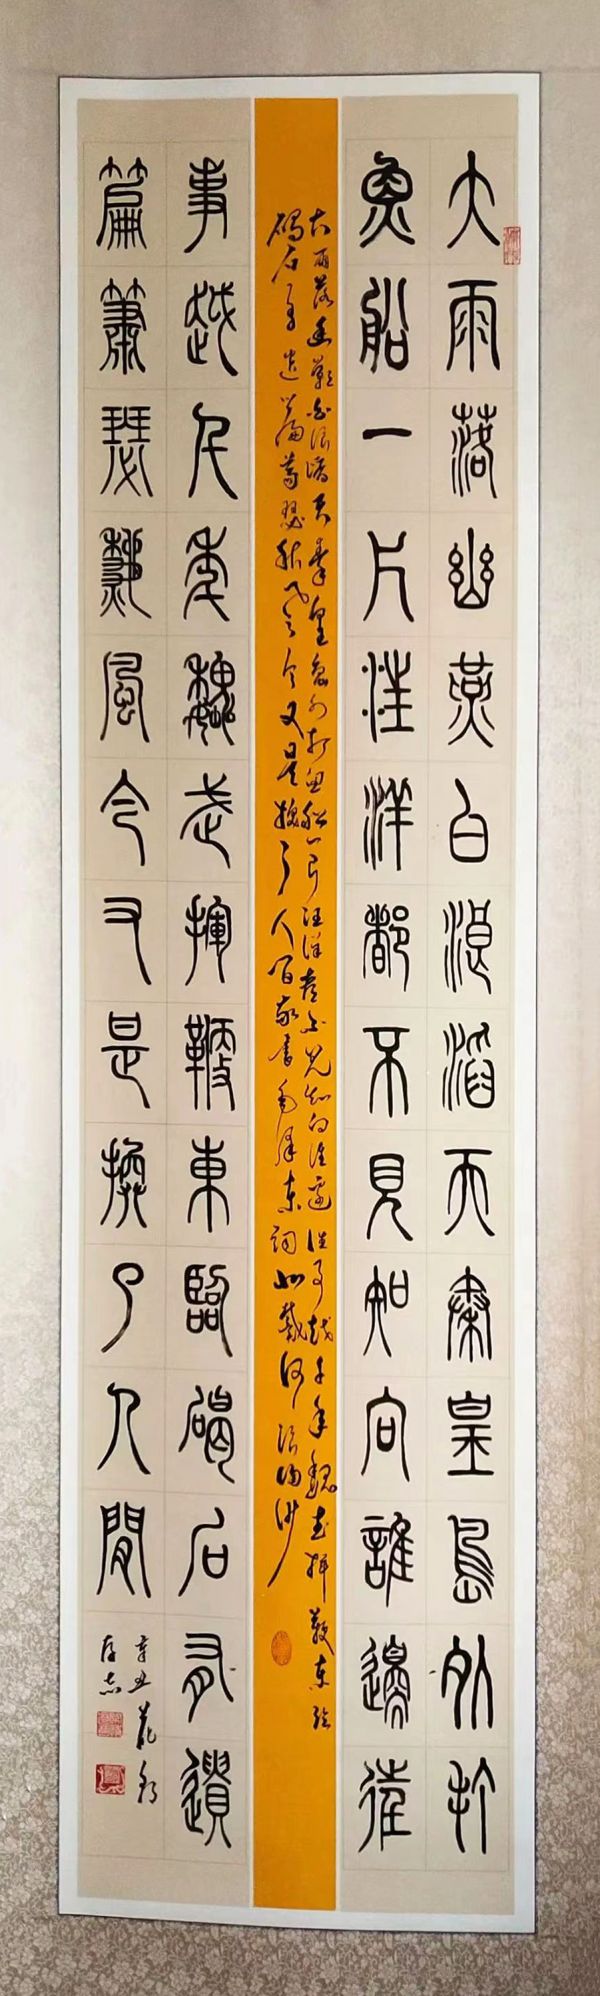 大雨落幽燕白浪滔天秦皇島外打
魚船一片汪洋都不見知向誰邊往
大雨落幽燕白浪滔天秦皇島外打魚船一片汪洋都不見知向誰邊往事越千年魏武揮鞭東臨
碣石有遺篇蕭瑟秋風今又是換了人間敬書毛澤東詞北戴河浪淘沙
事越千年魏武揮鞭東臨碣石有遺
篇蕭瑟秋風今又是換了人間
辛丑花朝
存志